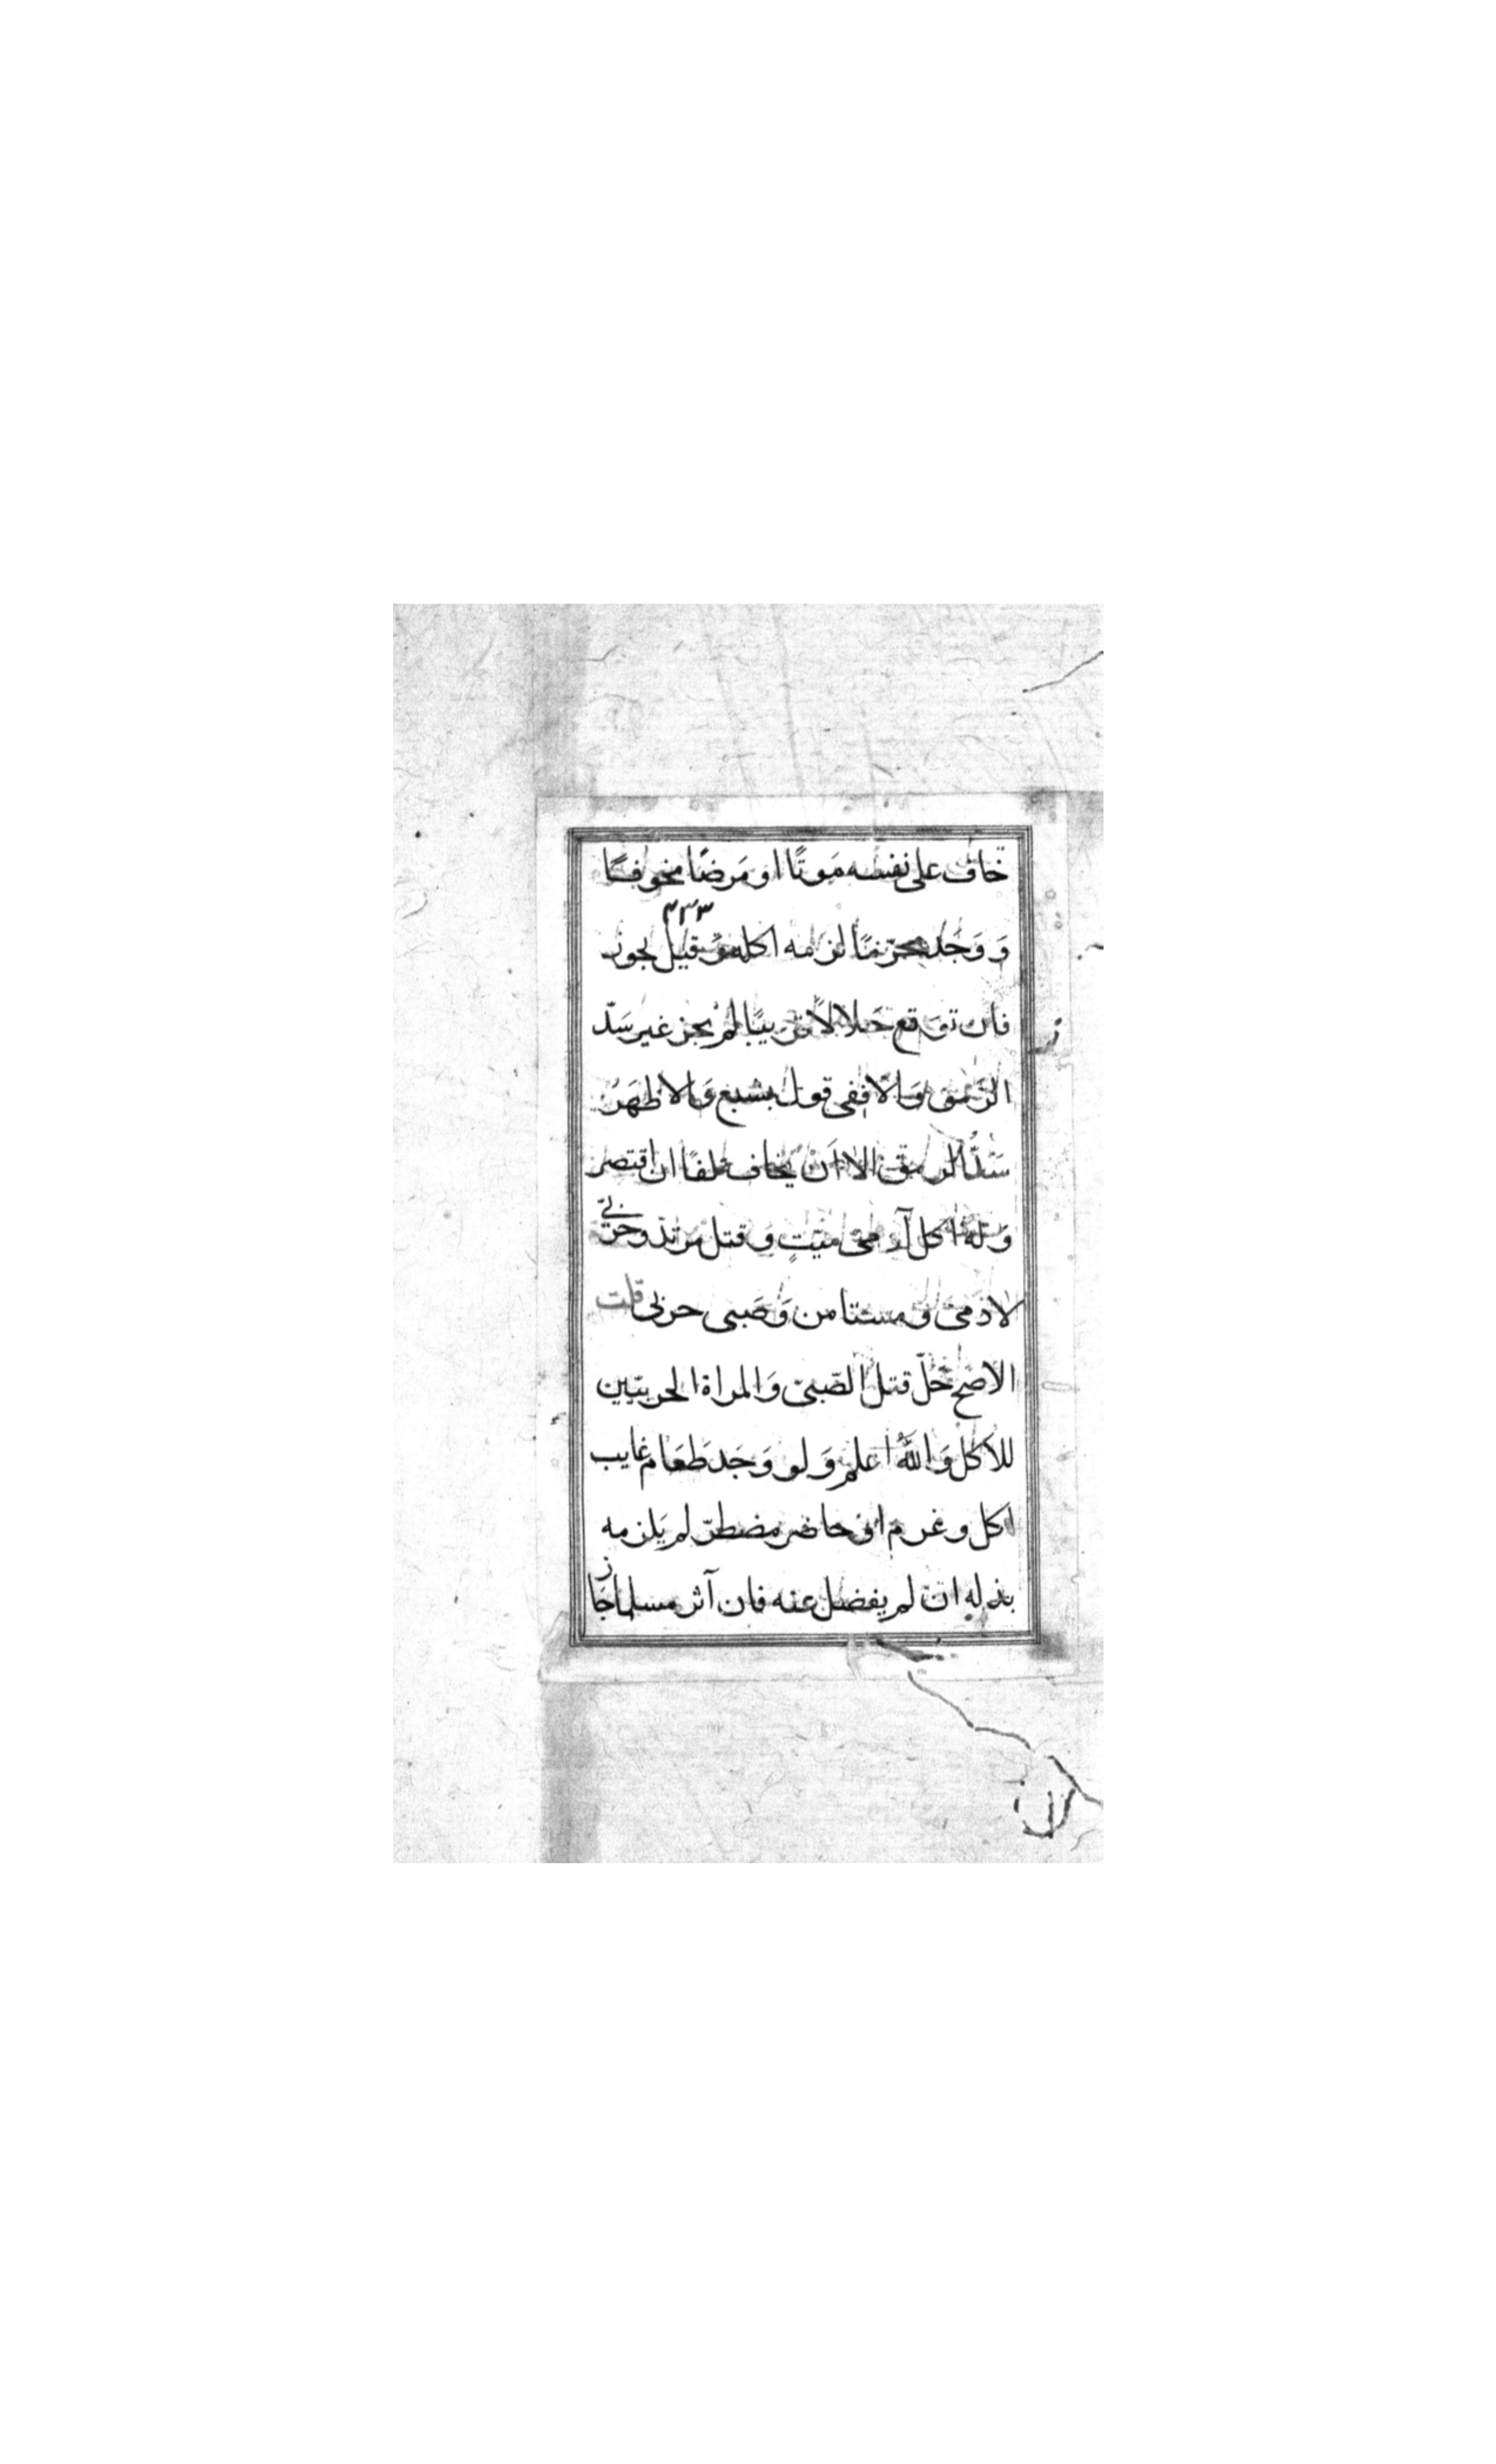 خاف على نفسه مَوتًا او مَرضًا مخوفًا
٤٣٣
وَ وَجَد محرّمًا لزمه اكله وَقيل يجوز
فان توَقع حَلالاً قريبًا لم يجز غير سَدّ
الرّمَق وَالّا ففى قول يشبع وَالاظهَرُ
سَدُّ الرمق الا اَن يخاف تلفًا ان اقتصر
وَلهُ اكل آدمىّ ميّتٍ وَ قتل مرتدّ وحَربىّ
لا ذمىّ وَمستامن وَصَبى حربى قلت
الاصَح حَلّ قتل الصّبىّ وَالمراة الحربيّين
للاكل وَاللهُ اعلم وَلو وَجَد طَعَام غايب
اكل وغرم اوْ حاضر مضطرّ لم يَلزمه
بذله ان لم يفضل عنه فان آثر مسلما جَاز